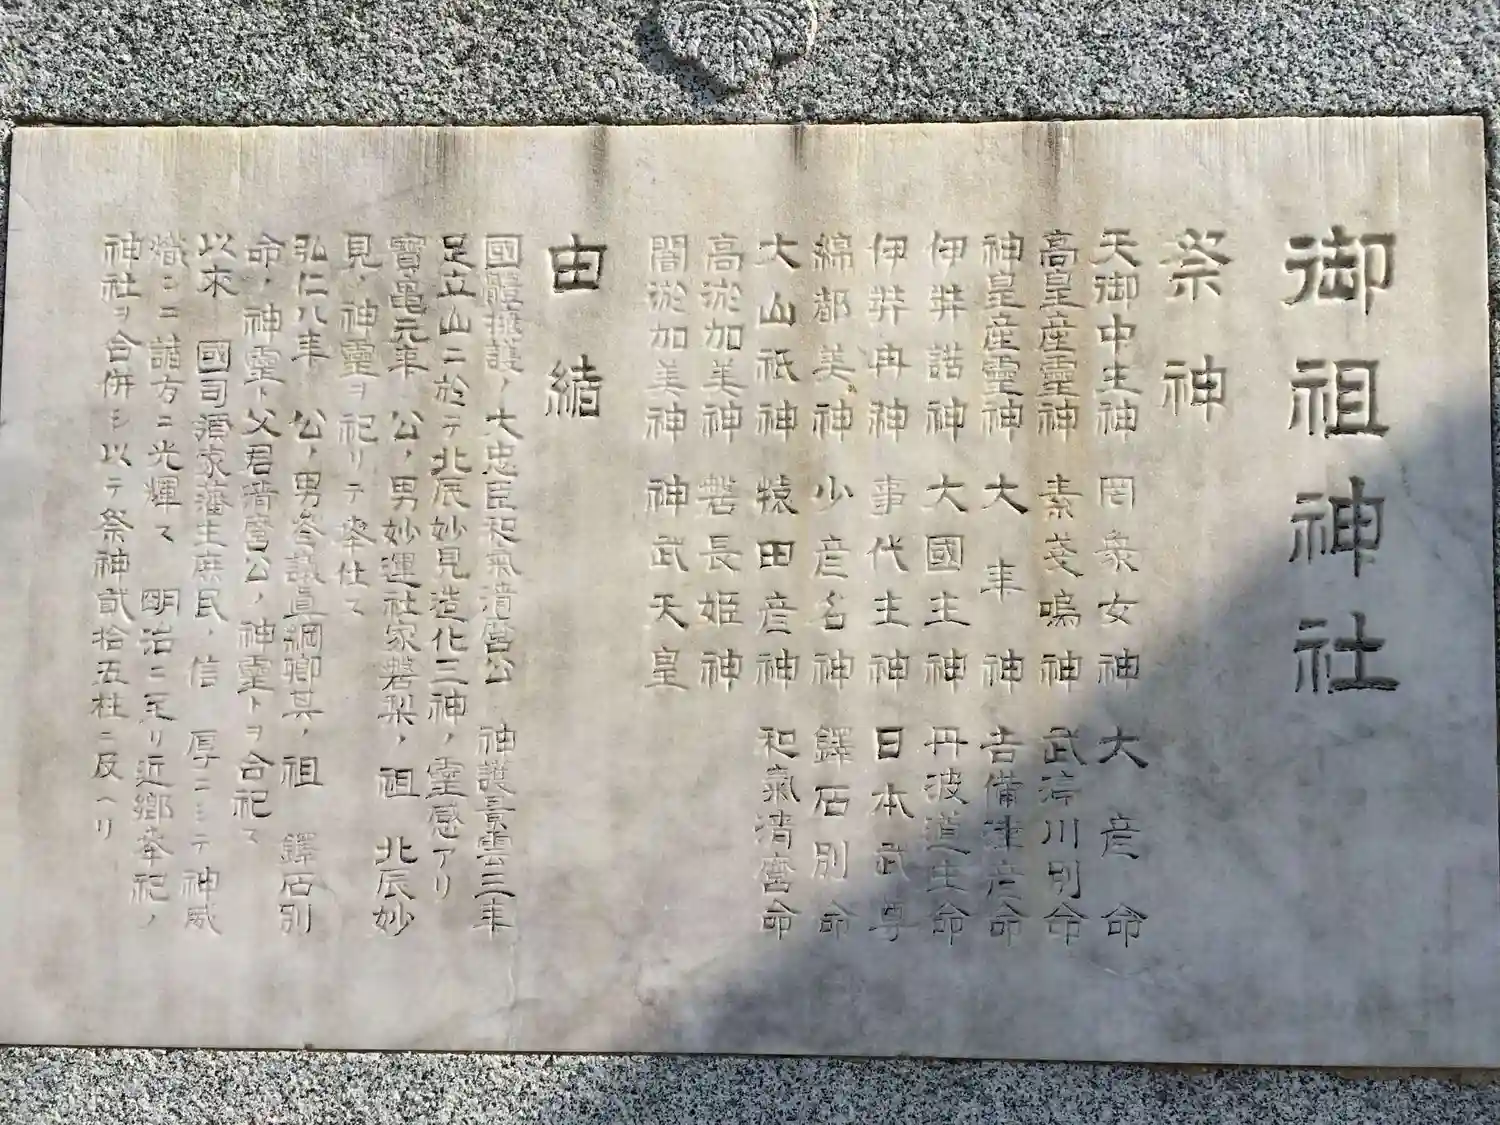 御祖神社
祭神
天御中主神 罔衆女神 大彦命
高皇産靈神 素戔嗚神 武渟川別命
神皇産靈神 大年神 吉備津彦命
伊弉諾神 大國主神 丹波道主命
伊弉冉神 事代主神 日本武尊
綿都美神 少彦名神 鐸石別命
大山祇神 猿田彦神 和氣清麿命
高淤加美神 磐長姫神
闇淤加美神 神武天皇
由緒
國體擁護ノ大忠臣和氣清麿公 神護景雲三年
足立山ニ於テ北辰妙見造化三神ノ靈感アリ
寶亀元年 公ノ男妙運社家磐梨ノ祖 北辰妙
見ノ神靈ヲ祀リテ奉仕ス
弘仁八年 公ノ男参議真綱卿其ノ祖 鐸石別
命ノ神靈ト父君清麿公ノ神靈トヲ合祀ス
以来 國司領家藩主庶民ノ信 厚ニシテ神威
熾ニニ諸方ニ光輝ス 明治ニ至リ近郷奉祀ノ
神社ヲ合併シ以テ祭神貮拾五柱ニ及ヘリ